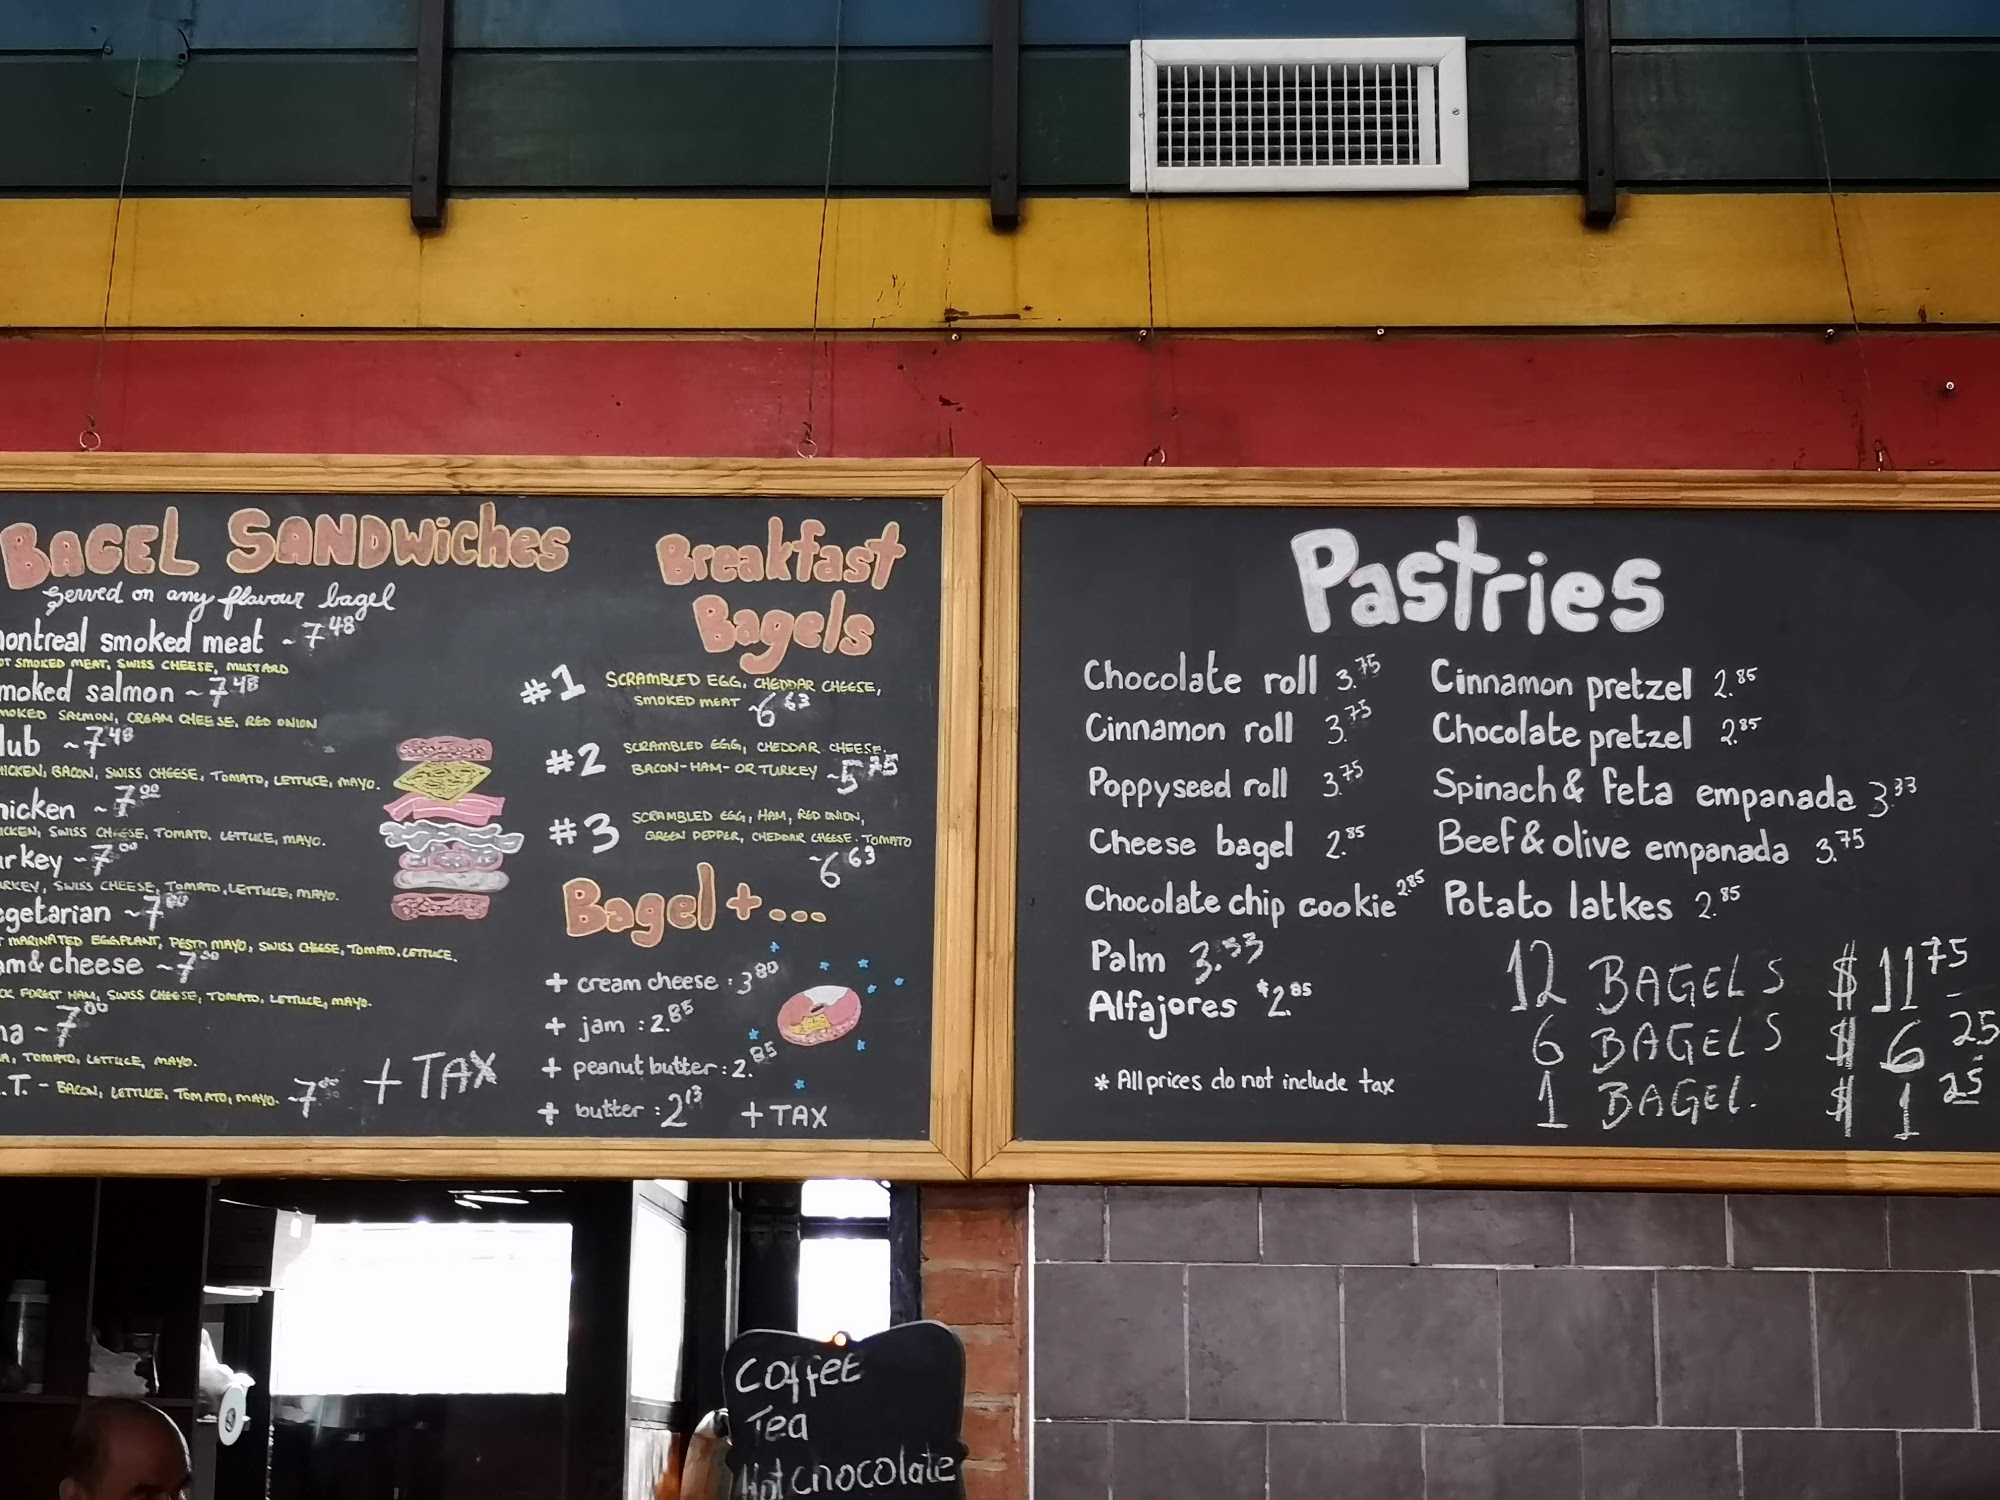 BAGEL SANDWiches
Served on any flavour bagel
ontreal smoked meat ~ 7 48
OT SMOKED MEAT, SWISS CHEESE, MUSTARD
moked salmon ~ 7 48
MOKED SALMON, CREAM CHEESE, RED ONION
lub ~ 7 48
HICKEN, BACON, SWISS CHEESE, TOMATO, LETTUCE, MAYO.
hicken ~ 7 00
ICKEN, SWISS CHEESE, TOMATO, LETTUCE, MAYO.
urkey ~ 7 00
URKEY, SWISS CHEESE, TOMATO, LETTUCE, MAYO.
egetarian ~ 7 00
T MARINATED EGGPLANT, PESTO MAYO, SWISS CHEESE, TOMATO. LETTUCE.
am & cheese ~ 7 00
CK FOREST HAM, SWISS CHEESE, TOMATO, LETTUCE, MAYO.
na ~ 7 00
A, TOMATO, LETTUCE, MAYO.
.T. - BACON, LETTUCE, TOMATO, MAYO. ~ 7 00
+ TAX
Breakfast
Bagels
#1 SCRAMBLED EGG, CHEDDAR CHEESE,
SMOKED MEAT ~ 6 63
#2 SCRAMBLED EGG, CHEDDAR CHEESE,
BACON-HAM-OR TURKEY ~ 5 75
#3 SCRAMBLED EGG, HAM, RED ONION,
GREEN PEPPER, CHEDDAR CHEESE. TOMATO
~ 6 63
Bagel + ...
+ cream cheese : 3 80
+ jam : 2.85
+ peanut butter : 2.85
+ butter : 2 13
+ TAX
Pastries
Chocolate roll 3.75
Cinnamon roll 3.75
Poppyseed roll 3.75
Cheese bagel 2.85
Chocolate chip cookie 2.85
Palm 3.33
Alfajores $2.85
* All prices do not include tax
Cinnamon pretzel 2.85
Chocolate pretzel 2.85
Spinach & feta empanada 3.33
Beef & olive empanada 3.75
Potato latkes 2.85
12 BAGELS $ 11 75
6 BAGELS $ 6 25
1 BAGEL. $ 1 25
Coffee
Tea
Hot chocolate